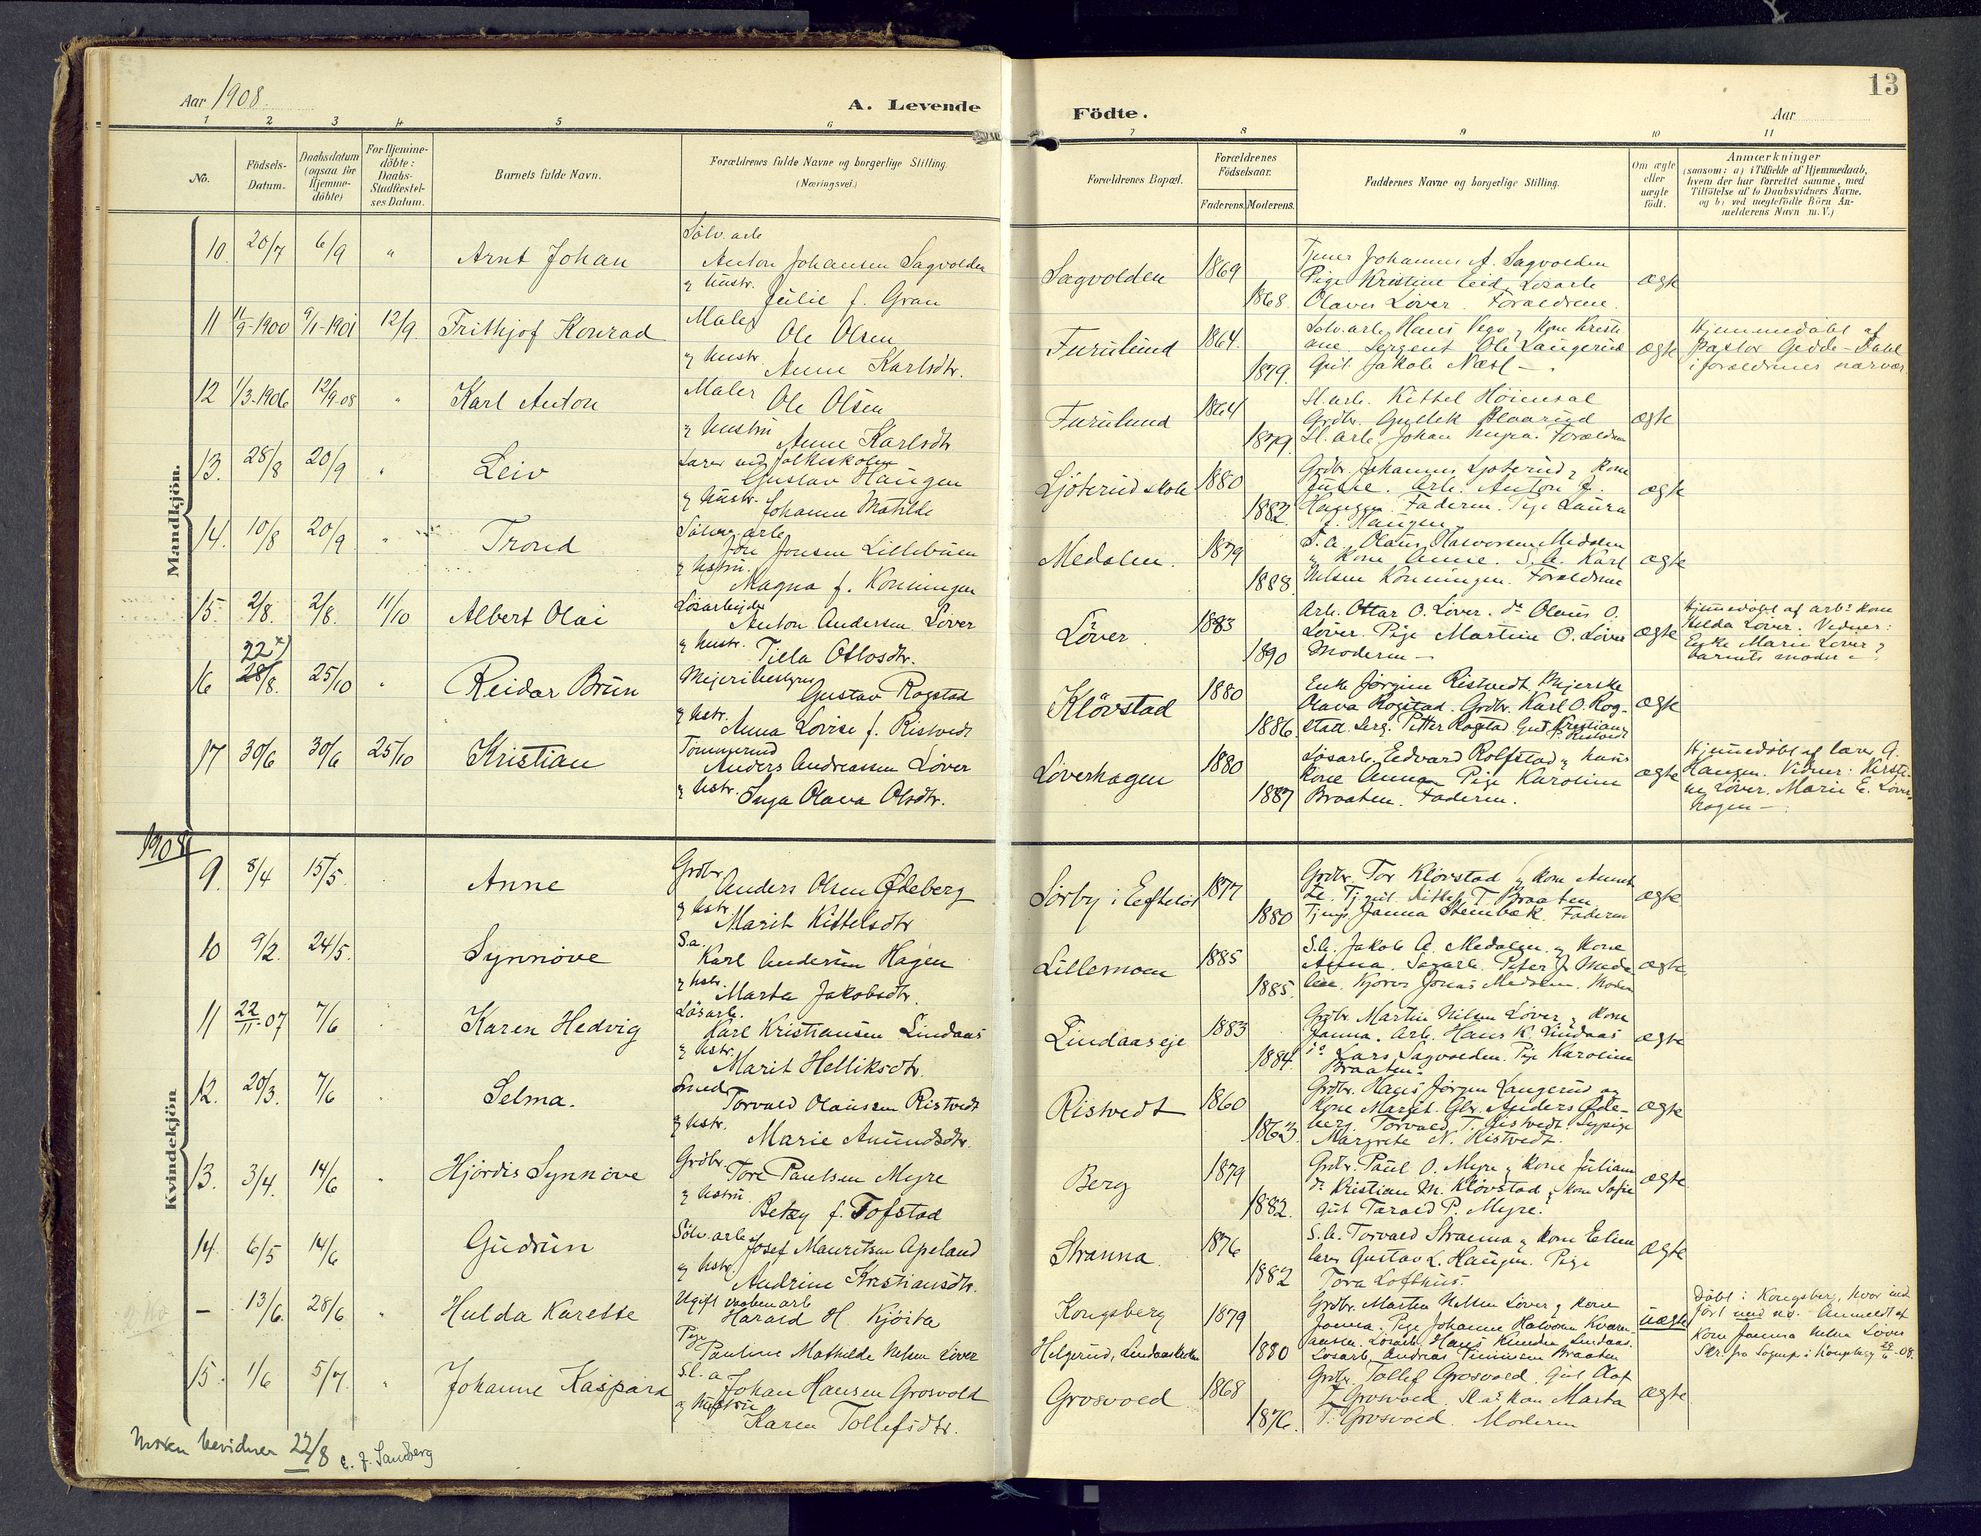 Aar 1908.
A. Levende Födte.
Aar
13
1 2 3 4 5 6 7 8 9 10 11
No.
Födsels-Datum.
Daabsdatum (ogsaa for Hjemme-döbte)
For Hjemme-döbte: Daabs-Stadfæstel-ses Datum.
Barnets fulde Navn.
Forældrenes fulde Navne og borgerlige Stilling. (Næringsvei.)
Forældrenes Bopæl.
Forældrenes Födselsaar.
Faderens. Moderens.
Faddernes Navne og borgerlige Stilling.
Om ægte eller uægte födt.
Anmærkninger
(saasom: a) i Tilfælde af Hjemmedaab,
hvem der har forrettet samme, med
Tilföielse af to Daabsvidners Navne.
og b) ved uægtefödte Börn An-
melderens Navn m. V.)
Mandkjön.
10. 20/7 6/9 " Arnt Johan
Sølv.arb.
Anton Johansen Sagvolden
og hustr.
Julie f. Gran
Sagvolden 1869 1868.
Tjener Johannes A. Sagvolden
Pige Kristine Eid, Løsarb.
Olaves Løver. Forældrene.
ægte
11 11/9-1900 9/1-1901 12/9. Frithjof Konrad
Maler
Ole Olsen
og hustr
Anne Karlsdtr.
Furulund 1864. 1879.
Sølv.arb. Hans Vego og Kone Kristi-
ane. Sergent Ole Langerud
Gut Jakob Næsl
ægte
Hjemmedøbt af
pastor Gedde-Dahl
i forældrenes nærvær.
12 1/3-1906 12/9-08 " Karl Anton
Maler
Ole Olsen
og hustru
Anne Karlsdtr
Furulund 1864 1879.
Sl.arb. Kittel Hoiensal
Grdbr. Gullik
Sl. arb. Johan Myra. Forældrene
ægte
13. 28/8 20/9 " Leiv
Lærer ved folkeskolen
Gustav Haugen
og hustr.
Johanne Matilde
Ljøterud skole 1880 1882
Grdbr. Johannes Ljøterud og Kone
Arb. Anton J.
Haugen. Faderen. Pige Laura
J. Haugen.
ægte
14. 10/8 20/9 " Trond
Sølvv.arb.
Jon Jonsen Lillebuen
og hstru.
Magna f. Konningen
Medalen. 1879 1888.
S.a. Olaus Halvorsen Medalen
og Kone Anne. S.A. Karl
Nilsen Konningen. Forældrene
ægte
15. 2/8. 2/8. 11/10 Albert Olai
Løsarbejder
Anton Andersen Løver
og hustr.
Tilla Ottosdtr.
Løver 1883 1890
Arb. Ottar O. Løver. do Olaus O.
Løver. Pige Martine O. Løver
Moderen
ægte
Hjemmedøbt af arbs kone
Hilda Løver. Vidner:
Enke Marie Løver og
barnets moder
16 22 x) 28/8. 25/10 " Reidar Brun
Meieribestyrer
Gustav Rogstad
og hstr.
Anna Lovise f. Ristvedt
Kløvstad 1880 1886.
Enke Jørgine Ristvedt, Meierske
Olava Rogstad. Grdbr. Karl O. Rog-
stad. Serg. Petter Rogstad. Gut Kristian
Ristvedt
ægte
17 30/6 30/6 25/10 Kristian
Tømmermd
Anders Andreassen Løver
og hstr.
Inga Olava Olsdtr.
Løverhagen 1880 1887
Løsarb. Edvard Rolfstad og hans
kone Anna Pige Karoline
Braaten. Faderen.
ægte
Hjemmedøbt af lærer G.
Haugen. Vidner: Kirsti-
ne Løver. Marie E. Løver-
hagen
1908
Kvindekjön
9. 8/4 15/5. Anne
Grdbr.
Anders Olsen Ødeberg
og hstr.
Marit Kittelsdtr
Sørby i Eftelöt 1877 1880
Grdbr. Tor Kløvstad og kone Annet-
te. Tj.gut. Kittel T. Braaten
Janna Steenbæk. Faderen
ægte
10 9/2. 24/5. Synnöve
S.a.
Karl Andersen Hagen
og hstr.
Marta Jakobsdtr.
Lillemoen 1885 1885.
S.a. Jakob A. Medalen og Kone
Anna. Sagarb. Peter J. Meda-
len. Kjører Jonas Medalen. Moderen
ægte
11 22/11-07 7/6 Karen Hedvig
Løsarb.
Karl Kristiansen Lindaas
og hstr.
Marit Helliksdtr.
Lindaaseje 1883 1884.
Grdbr Martin Nilsen Løver og Kone
Janna. Arb. Hans K. Lindaas
do Lars Sagvolden. Pige Karoline
Braaten.
ægte
12. 20/3. 7/6 Selma.
Smed
Torvald Olaussen Ristvedt
og hstr.
Marie Amundsdtr.
Ristvedt 1860 1863.
Grdbr. Hans Jørgen Langerud og
Kone Marit. Gbr. Anders Øde-
berg. Torvald T. Ristvedt. Sypige
Margrete N. Ristvedt.
ægte
13. 3/4. 14/6 " Hjördis Synnöve
Grdbr.
Tore Paulsen Myre
og hstru
Betzy f. Tofstad
Berg 1879 1882.
Grdbr. Paul O. Myre og Kone Juliane
do Kristian M. Kløvstad og Kone Sofie
Gut Tarald P. Myre.
ægte.
14. 6/5 14/6 Gudrun
Sølv.arb.
Josef Mauritsen Apeland
og hstr.
Andrine Kristiansdtr.
Stranna. 1876 1882
S.A. Torvald Stranna og Kone Elen
lærer Gustav L. Haugen. Pige
Tora Lofthus.
ægte
— 13/6. 28/6 " Hulda Karette
Ugift vaabenarb.
Harald H. Kjøita
Pige
Pauline Mathilde Nilsen Løver
Kongsberg
Helgerud, Lindaas
1879 1880
Grdbr. Martin Nilsen Løver og Kone
Janna. Pige Johanne Halvorsen
Løsarb. Hans Knudsen Lindaas.
Løsarb. Andreas Braaten
uægte
Døbt i Kongsberg, hvor ind-
ført med no. Anmeldt af
Kone Janna Nilsen Løver
fra Sognep. i Kongsberg 29/6-08.
15. 1/6 5/7. " Johanne Kaspara
Sl. a.
Johan Hansen Grosvold
og Hustru
Karen Tollefsdtr.
Grosvold 1868 1876.
Grdbr. Tollef Grosvold. Gut Olaf
T. Grosvold. Sl.as kon Marta
T. Grosvold. Moderen
ægte
bevidner 22/8 C. J. Sandberg